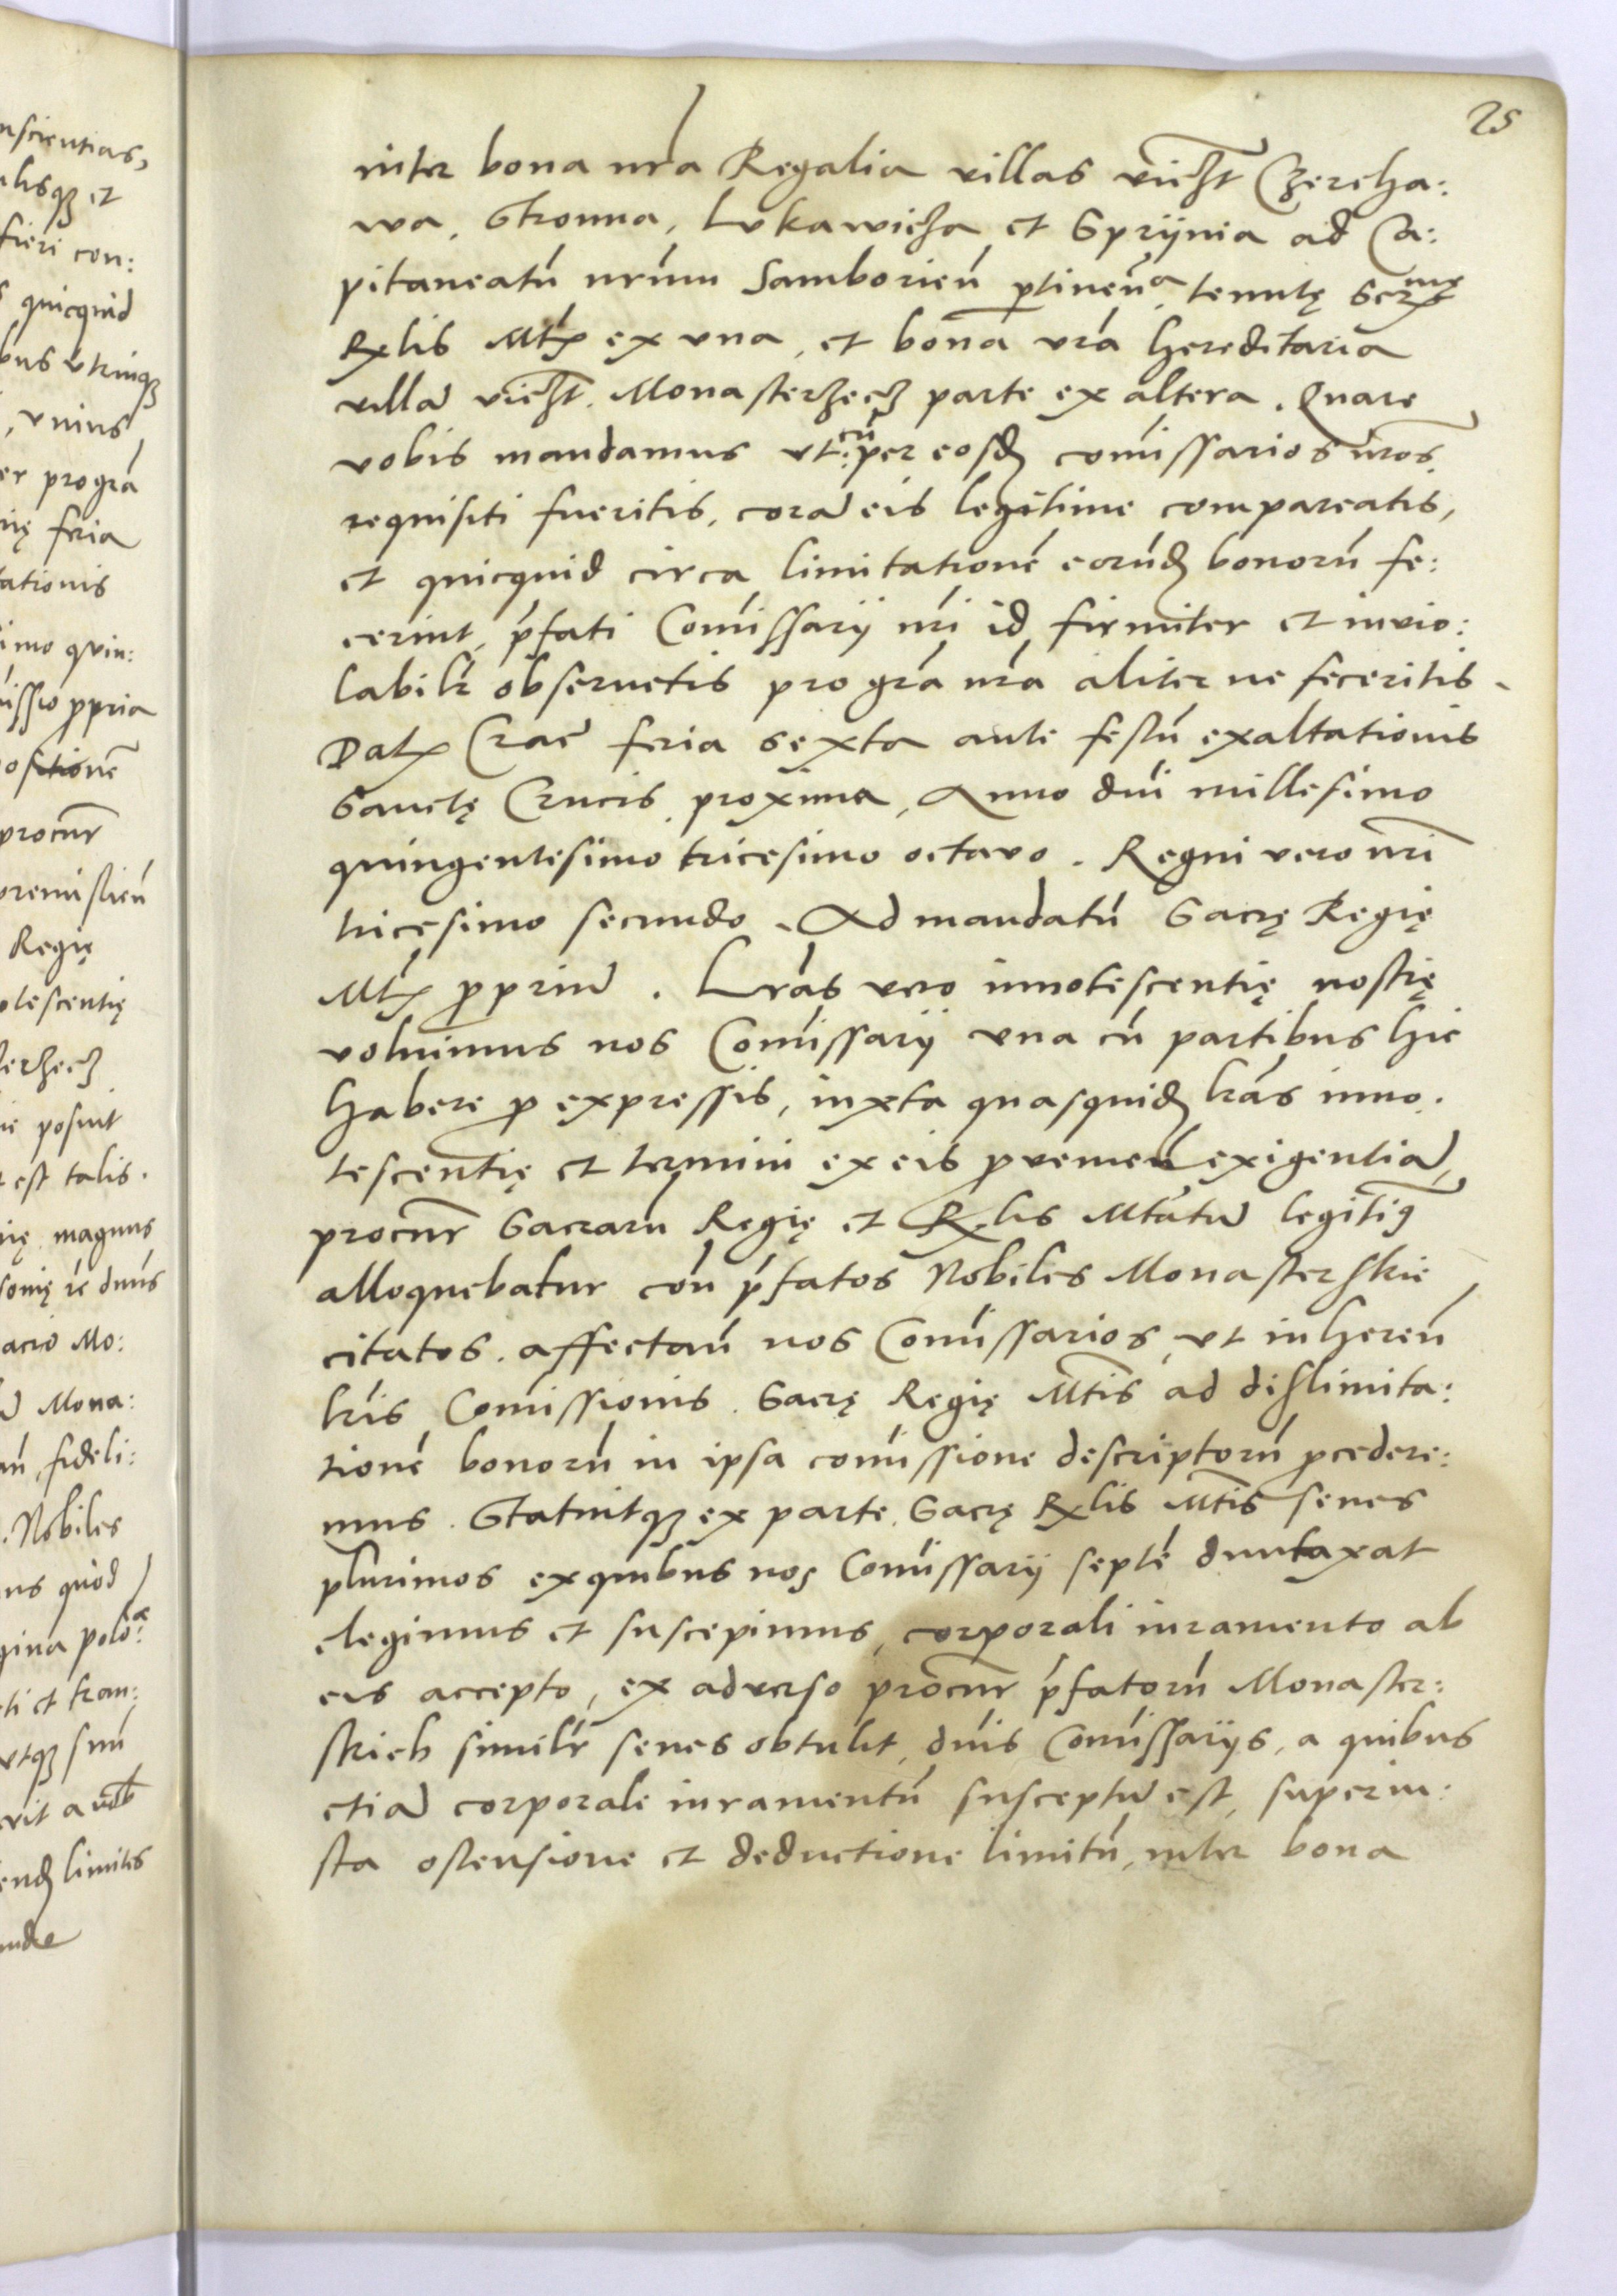 25
inter bona nr̃a Regalia villas vicꝫt Czereha:
wa, Stronna, Lukawicza et Sprÿnia ad Ca:
pitaneatū nrūm Samboriēn ꝑtinēn̄a, tenutę Serme
Rҗlis Mtis ex una, et bona vrā hereditaria
villā vicꝫt. Monasterzecz parte ex altera. Quare
vobis mandamus ut cū: per eosdꝫ comīssarios nr̄os
requisiti fueritis, corā eis legitime compareatis,
et quicquid circa limitationē eorūdꝫ bonorū fe:
cerint, p̄fati Comīssarij nr̄i id firmiter et invio:
labilr̄ obseruetis pro gra͂ nra͂ aliter ne feceritis.
Datꝫ Crac̄ feria sexta ante festū exaltationis
Sanctę Crucis proxima, Anno dn̄i millesimo
quingentesimo tricesimo octavo. Regni vero nr̄i
tricesimo secundo. Ad mandatū Sacrę Regię
Mtis ꝓpriū. Lr̄as vero innotescentię nostrę
voluimus nos Comīssarij una cū partibus hic
habere ꝓ expressis, iuxta quasquidꝫ lr̄as inno.
tescentię et termini ex eis ꝓvenien̄ exigentiā,
procur̄ Sacrarū Regię et Rҗlis Mtatū legitiꝯ
alloquebatur con̄ p̄fatos Nobiles Monasterskie
citatos. affectan̄ nos Comīssarios ut inheren̄
lr̄is Comīssionis Sacrę Regię Mtis̄ ad dislimita:
tionē bonorū in ipsa comīssione descriptorū ꝓcedere:
mus. Statuitqꝫ ex parte Sacrę Rҗlis Mtis̄ senes
plurimos ex quibus nos Comīssarij septē duntaxat
elegimus et suscepimus, corporali iuramento ab
eis accepto, ex adverso procur̄ p̄fatorū Monaster:
skich similr̄ senes obtulit, dn̄is Comīssarijs, a quibus
etiā corporale iuramentū susceptū est, super iu:
sta ostensione et deductione limitū, inter bona